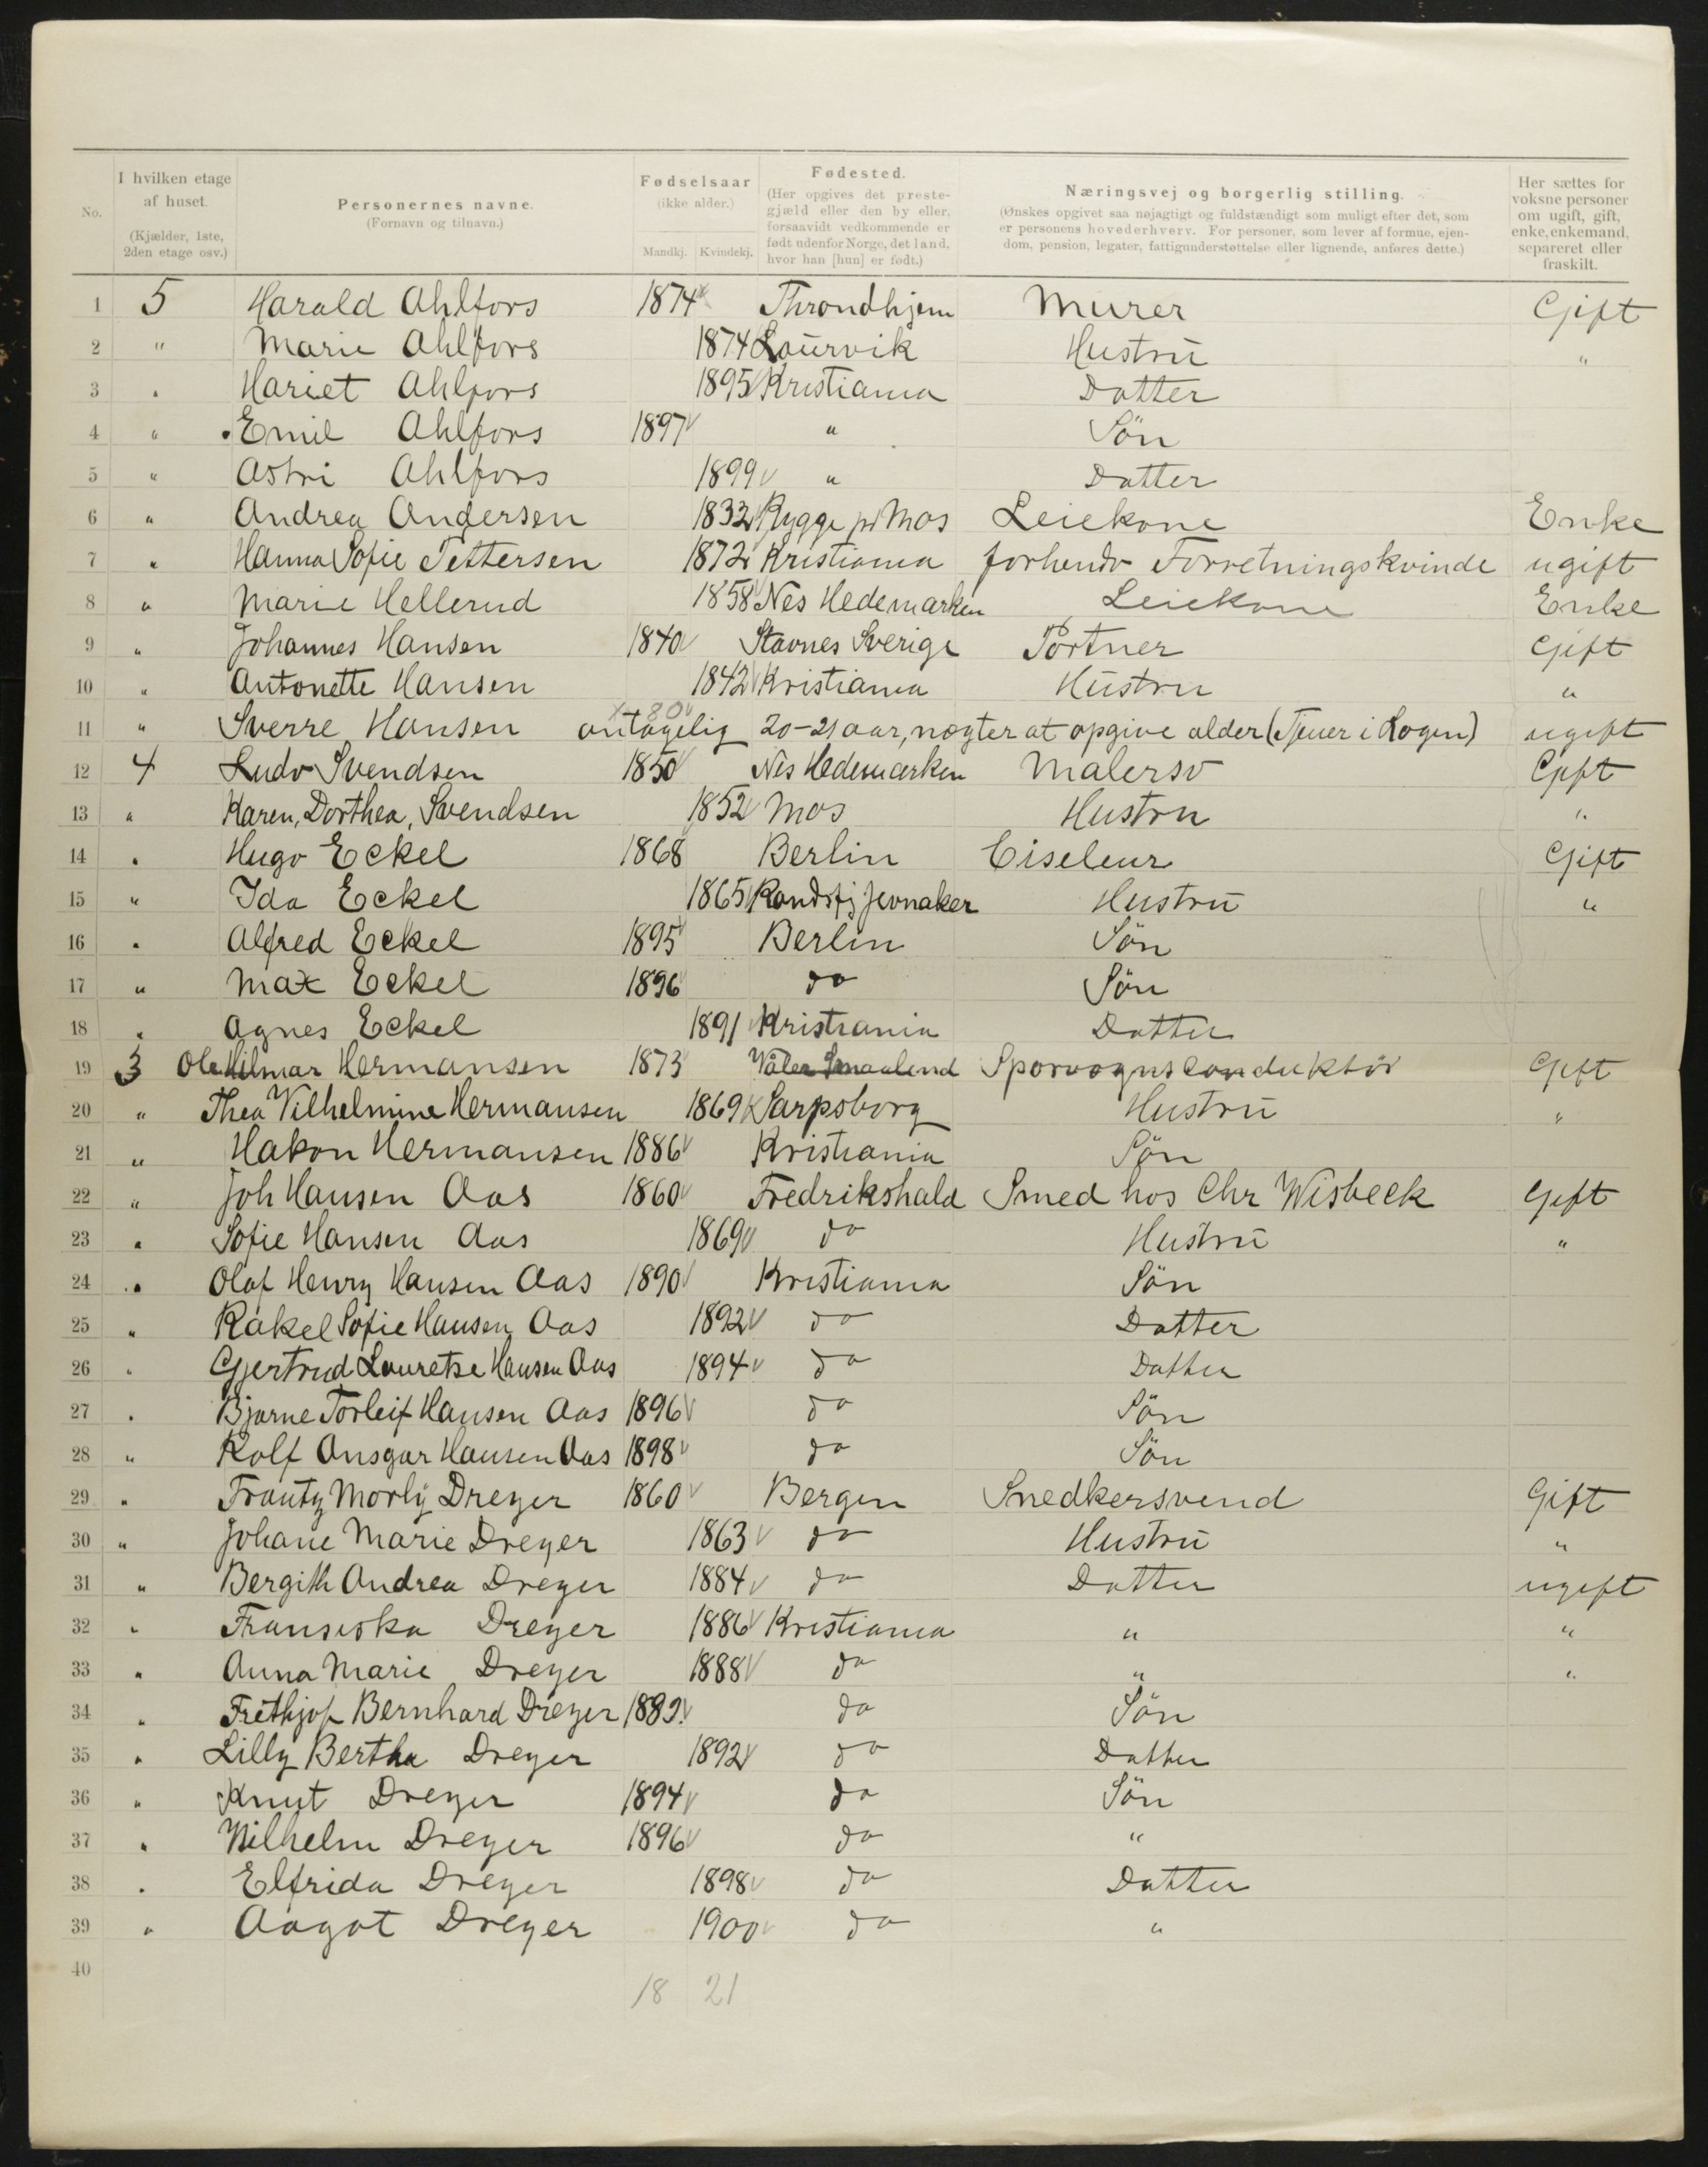 No. I hvilken etage af huset. (Kjælder, 1ste, 2den etage osv.) Personernes navne. (Fornavn og tilnavn.) Fødselsaar (ikke alder.) Mandkj. Kvindekj. Fødested. (Her opgives det prestegjæld eller den by eller, forsaavidt vedkommende er født udenfor Norge, det land, hvor han [hun] er født.) Næringsvej og borgerlig stilling. (Ønskes opgivet saa nøjagtigt og fuldstændigt som muligt efter det, som er personens hovederhverv. For personer, som lever af formue, ejendom, pension, legater, fattigunderstøttelse eller lignende, anføres dette.) Her sættes for voksne personer om ugift, gift, enke, enkemand, separeret eller fraskilt.
1 5 Harald Ahlfors 1874 Throndhjem Murer Gift
2 " Marie Ahlfors 1874 Laurvik Hustru "
3 " Hariet Ahlfors 1895 Kristiania Datter
4 " Emil Ahlfors 1897 " Sön
5 " Astri Ahlfors 1899 " Datter
6 " Andrea Andersen 1832 Rygge pr Mos Leiekone Enke
7 " Hanna Sofie Pettersen 1872 Kristiania forhenv Forretningskvinde ugift
8 " Marie Hellerud 1858 Nes Hedemarken Leiekone Enke
9 " Johannes Hansen 1840 Stavnes Sverige Portner Gift
10 " Antonette Hansen 1842 Kristiania Hustru "
11 " Sverre Hansen antagelig 20-21 aar, nægter at opgive alder (Tjener i Logen) ugift
80
12 4 Ludv Svendsen 1850 Nes Hedemarken Malersv Gift
13 " Karen, Dorthea, Svendsen 1852 Mos Hustru "
14 " Hugo Eckel 1868 Berlin Ciseleur Gift
15 " Ida Eckel 1865 Randsfj Jevnaker Hustru "
16 " Alfred Eckel 1895 Berlin Sön
17 " Max Eckel 1896 do Sön
18 " Agnes Eckel 1891 Kristiania Datter
19 3 Ole Hilmar Hermansen 1873 Våler Smaalend Sporvognsconduktör Gift
20 " Thea Vilhelmine Hermansen 1869 Sarpsborg Hustru "
21 " Hakon Hermansen 1886 Kristiania Sön
22 " Joh Hansen Aas 1860 Fredrikshald Smed hos Chr Wisbeck Gift
23 " Sofie Hansen Aas 1869 do Hustru "
24 " Olaf Henry Hansen Aas 1890 Kristiania Sön
25 " Rakel Sofie Hansen Aas 1892 do Datter
26 " Gjertrud Lauretse Hansen Aas 1894 do Datter
27 " Bjarne Torleif Hansen Aas 1896 do Sön
28 " Rolf Ansgar Hansen Aas 1898 do Sön
29 " Frantz Morly Dreyer 1860 Bergen Snedkersvend Gift
30 " Johane Marie Dreyer 1863 do Hustru "
31 " Bergith Andrea Dreyer 1884 do Datter ugift
32 " Fransiska Dreyer 1886 Kristiania " "
33 " Anna Marie Dreyer 1888 do " "
34 " Frethjof Bernhard Dreyer do Sön
35 " Lilly Bertha Dreyer 1892 do Datter
36 " Knut Dreyer 1894 do Sön
37 " Wilhelm Dreyer 1896 do "
38 " Elfrida Dreyer 1898 do Datter
39 " Aagot Dreyer 1900 do "
40
18 21